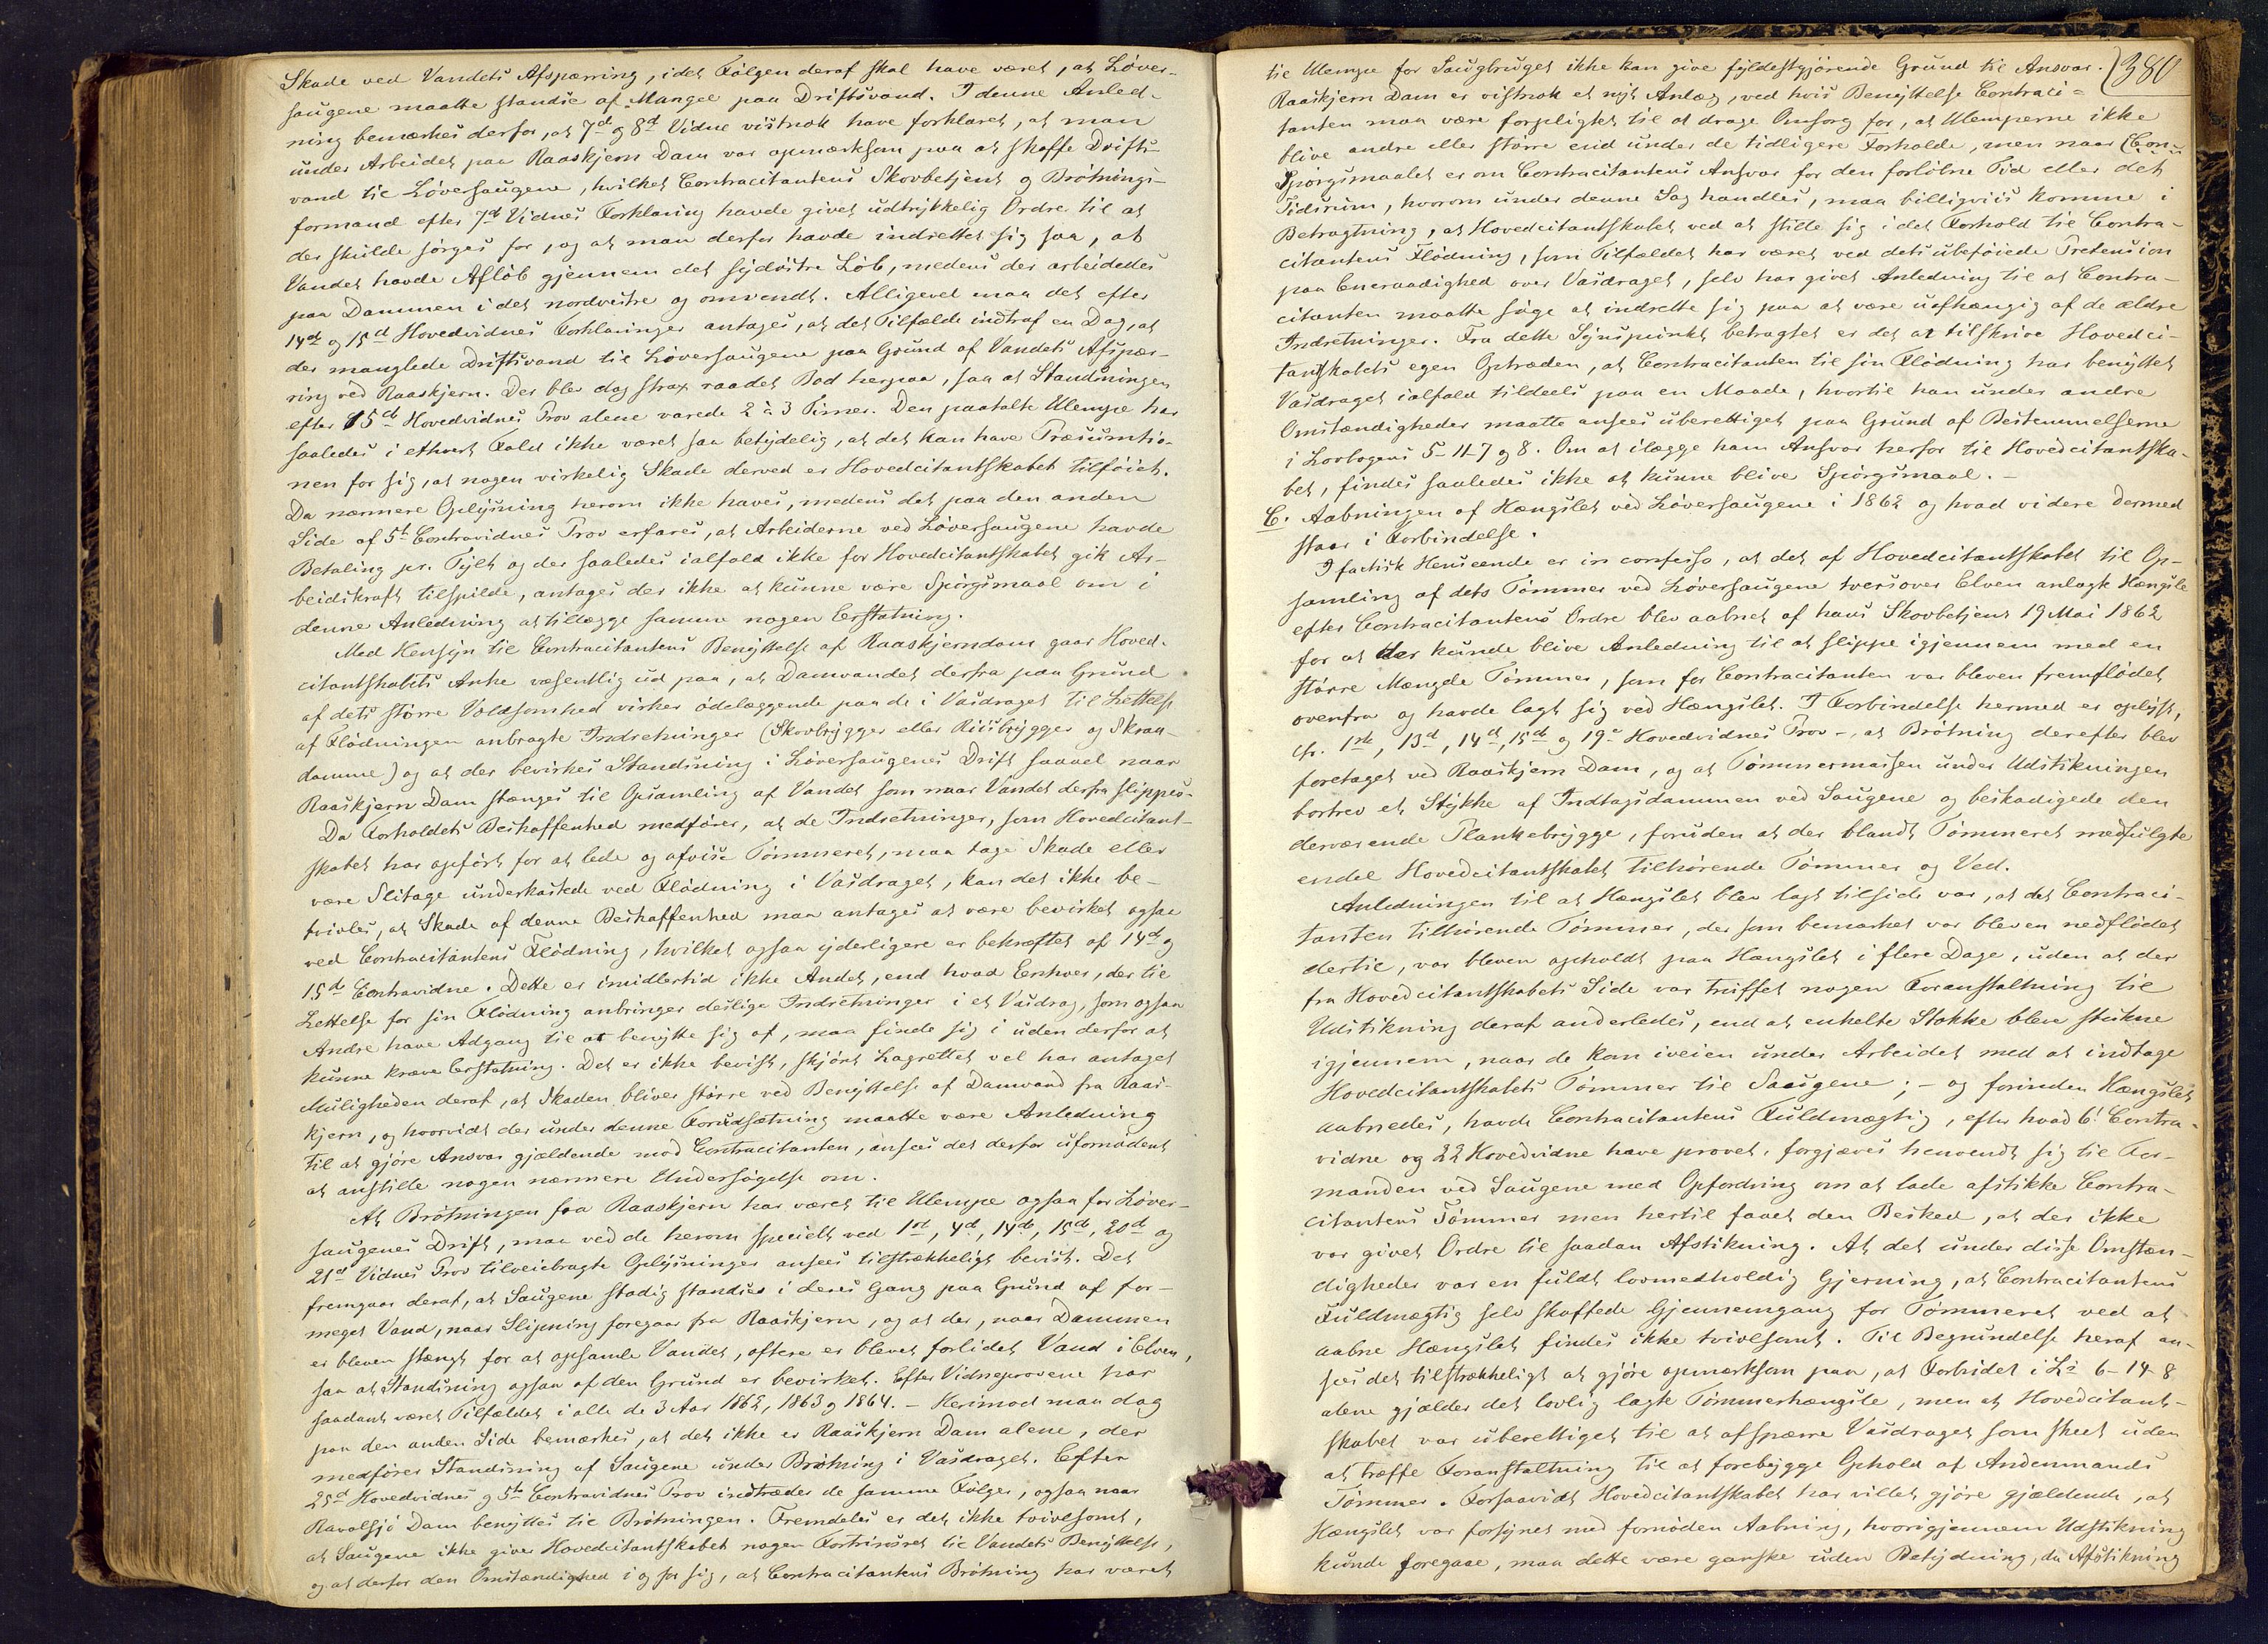 Skade ved Vandets Afspærring, idet Følgen deraf skal have været, at Løver-
saugene maatte standse af Mangel paa Driftsvand. I denne Anled-
ning bemærkes derfor, at 7de og 8de Vidne vistnok have forklaret, at man
under Arbeidet paa Raaskjern Dam var opmærksom paa at skaffe Drifts-
vand til Løversaugene, hvilket Contracitantens Skovbetjent og Brøtnings-
formand efter 7de Vidnes Forklaring havde givet udtrykkelig Ordre til at
der skulde sørges for, og at man derfor havde indrettet sig saa, at
Vandet havde Afløb gjennem det sydøstre Løb, medens der arbeidedes
paa Dammen i det nordvestre og omvendt. Alligevel maa det efter
14de og 15de Hovedvidnes Forklaringer antages, at det Tilfælde indtraf en Dag, at
der manglede Driftsvand til Løversaugene paa Grund af Vandets Afspær-
ring ved Raaskjern. Der blev dog strax raadet Bod herpaa, saa at Standsningen
efter 15de Hovedvidnes Prov alene varede 2 à 3 Timer. Den paatalte Ulempe har
saaledes i ethvert Fald ikke været saa betydelig, at det kan have Præsumtio-
nen for sig, at nogen virkelig Skade derved er Hovedcitantskabet tilføiet.
Da nærmere Oplysning herom ikke haves, medens det paa den anden
Side af 5te Contravidnes Prov erfares, at Arbeiderne ved Løversaugene havde
Betaling pr. Tylt og der saaledes ialfald ikke for Hovedcitantskabet gik Ar-
beidskraft tilspilde, antages der ikke at kunne være Spørgsmaal om i
denne Anledning at tillægge samme nogen Erstatning.
Med Hensyn til Contracitantens Benyttelse af Raaskjerndam gaar Hoved-
citantskabets Anke væsentlig ud paa, at Damvandet derfra paa Grund
af dets større Voldsomhed virker ødelæggende paa de i Vasdraget til Lettelse
af Flødningen anbragte Indretninger (Skovbrygger eller Riisbrygger og Skraa-
damme) og at der bevirkes Standsning i Løversaugenes Drift saavel naar
Raaskjern Dam stænges til Opsamling af Vandet som naar Vandet derfra slippes.
Da Forholdets Beskaffenhed medfører, at de Indretninger, som Hovedcitant-
skabet har opført for at lede og afvise Tømmeret, maa tage Skade eller
være Slitage underkastede ved Flødning i Vasdraget, kan det ikke be-
tvivles, at Skade af denne Beskaffenhed maa antages at være bevirket ogsaa
ved Contracitantens Flødning, hvilket ogsaa yderligere er bekræftet af 14de og
15de Contravidne. Dette er imidlertid ikke Andet, end hvad Enhver, der til
Lettelse for sin Flødning anbringer deslige Indretninger i et Vasdrag, som ogsaa
Andre have Adgang til at benytte sig af, maa finde sig i uden derfor at
kunne kræve Erstatning. Det er ikke bevist, skjønt Lagrettet vel har antaget
Muligheden deraf, at Skaden bliver større ved Benyttelse af Damvand fra Raas-
kjern, og hvorvidt der under denne Forudsætning maatte være Anledning
til at gjøre Ansvar gjældende mod Contracitanten, ansees det derfor ufornødent
at anstille nogen nærmere Undersøgelse om.
At Brøtningen fra Raaskjern har været til Ulempe ogsaa for Løver-
saugenes Drift, maa ved de herom specielt ved 1ste, 4de, 14de, 15de, 20de og
21de Vidnes Prov tilveiebragte Oplysninger ansees tilstrækkeligt bevist. Det
fremgaar deraf, at Saugene stadig standses i deres Gang paa Grund af for-
meget Vand, naar Slipning foregaar fra Raaskjern, og at der, naar Dammen
er bleven stængt for at opsamle Vandet, oftere er blevet forlidet Vand i Elven,
saa at Standsning ogsaa af den Grund er bevirket. Efter Vidneprovene har
saadant været Tilfældet i alle de 3 Aar 1862, 1863 og 1864. – Herimod maa dog
paa den anden Side bemærkes, at det ikke er Raaskjern Dam alene, der
medfører Standsning af Saugene under Brøtning i Vasdraget. Efter
25de Hovedvidnes og 5te Contravidnes Prov indtræder de samme Følger, ogsaa naar
Ravalsjø Dam benyttes til Brøtningen. Fremdeles er det ikke tvivlsomt,
at Saugene ikke giver Hovedcitantskabet nogen Fortrinsret til Vandets Benyttelse,
og at derfor den Omstændighed i og for sig, at Contracitantens Brøtning har været
380
til Ulempe for Saugbruget ikke kan give fyldestgjørende Grund til Ansvar.
Raaskjern Dam er vistnok et nyt Anlæg, ved hvis Benyttelse Contraci-
tanten maa være forpligtet til at drage Omsorg for, at Ulemperne ikke
blive andre eller større end under de tidligere Forholde, men naar
Spørgsmaalet er om Contracitantens Ansvar for den forløbne Tid eller det
Tidsrum, hvorom under denne Sag handles, maa billigviis komme i
Betragtning, at Hovedcitantskabet ved at stille sig i det Forhold til Contra-
citantens Flødning, som Tilfældet har været ved dets ubeføiede Pretension
paa Eneraadighed over Vasdraget, selv har givet Anledning til at Contra-
citanten maatte søge at indrette sig paa at være uafhængig af de ældre
Indretninger. Fra dette Synspunkt betragtet er det at tilskrive Hovedci-
tantskabets egen Optræden, at Contracitanten til sin Flødning har benyttet
Vasdraget ialfald tildeels paa en Maade, hvortil han under andre
Omstændigheder maatte ansees uberettiget paa Grund af Bestemmelserne
i Lovbogens 5-11-7 og 8. Om at ilægge ham Ansvar herfor til Hovedcitantska-
bet, findes saaledes ikke at kunne blive Spørgsmaal. –
C. Aabningen af Hængslet ved Løversaugene i 1862 og hvad videre dermed
staar i Forbindelse.
I factisk Henseende er in confesso, at det af Hovedcitantskabet til Op-
samling af dets Tømmer ved Løversaugene tversover Elven anlagte Hængsle
efter Contracitantens Ordre blev aabnet af hans Skovbetjent 19 Mai 1862
for at der kunde blive Anledning til at slippe igjennem med en
større Mængde Tømmer, som for Contracitanten var bleven fremflødet
ovenfra og havde lagt sig ved Hængslet. I Forbindelse hermed er oplyst,
cfr. 1ste, 13de, 14de, 15de og 19de Hovedvidnes Prov –, at Brøtning derefter blev
foretaget ved Raaskjern Dam, og at Tømmermassen under Udstikningen
bortrev et Stykke af Indtagsdammen ved Saugene og beskadigede den
derværende Plankebrygge, foruden at der blandt Tømmeret medfulgte
endel Hovedcitantskabet tilhørende Tømmer og Ved.
Anledningen til at Hængslet blev lagt tilside var, at det Contraci-
tanten tilhørende Tømmer, der som bemærket var bleven nedflødet
dertil, var bleven opholdt paa Hængslet i flere Dage, uden at der
fra Hovedcitantskabets Side var truffet nogen Foranstaltning til
Udstikning deraf anderledes, end at enkelte Stokke bleve stukne
igjennem, naar de kom iveien under Arbeidet med at indtage
Hovedcitantskabets Tømmer til Saugene; – og forinden Hængslet
aabnedes, havde Contracitantens Fuldmægtig, efter hvad 6te Contra-
vidne og 22 Hovedvidne have provet, forgjæves henvendt sig til For-
manden ved Saugene med Opfordring om at lade afstikke Contra-
citantens Tømmer men hertil faaet den Besked, at der ikke
var givet Ordre til saadan Afstikning. At det under disse Omstæn-
digheder var en fuldt lovmedholdig Gjerning, at Contracitantens
Fuldmægtig selv skaffede Gjennemgang for Tømmeret ved at
aabne Hængslet findes ikke tvivlsomt. Til Begrundelse heraf an-
sees det tilstrækkeligt at gjøre opmærksom paa, at Forbudet i L's 6-14-8
alene gjælder det lovlig lagte Tømmerhængsle, men at Hovedcitant-
skabet var uberettiget til at afspærre Vasdraget som skeet uden
at træffe Foranstaltning til at forebygge Ophold af Andenmands
Tømmer. Forsaavidt Hovedcitantskabet har villet gjøre gjældende, at
Hængslet var forsynet med fornøden Aabning, hvorigjennem Udstikning
kunde foregaae, maa dette være ganske uden Betydning, da Afstikning